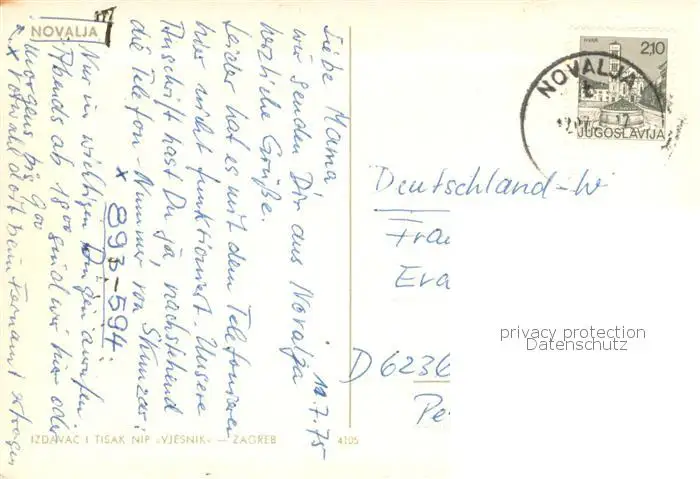 NOVALJA
11.7.75
Liebe Mama
wir senden Dir aus Novalja
herzliche Grüße.
Leider hat es mit dem Telefonieren
hier nicht funktioniert. Unsere
Anschrift hast Du ja, nachstehend
die Telefon-Nummer von Skunzar:
x 893-594.
Nur in wichtigen Dingen anrufen.
Abends ab 18 00 sind wir hier oder
morgens bis 9 00
x Vorwahl dort beim Fernamt erfragen
IZDAVAČ I TISAK NIP »VJESNIK« — ZAGREB
4105
HVAR
2,10
JUGOSLAVIJA
NOVALJA
Deutschland-W
Frau
Eva
D 6236
privacy protection
Datenschutz